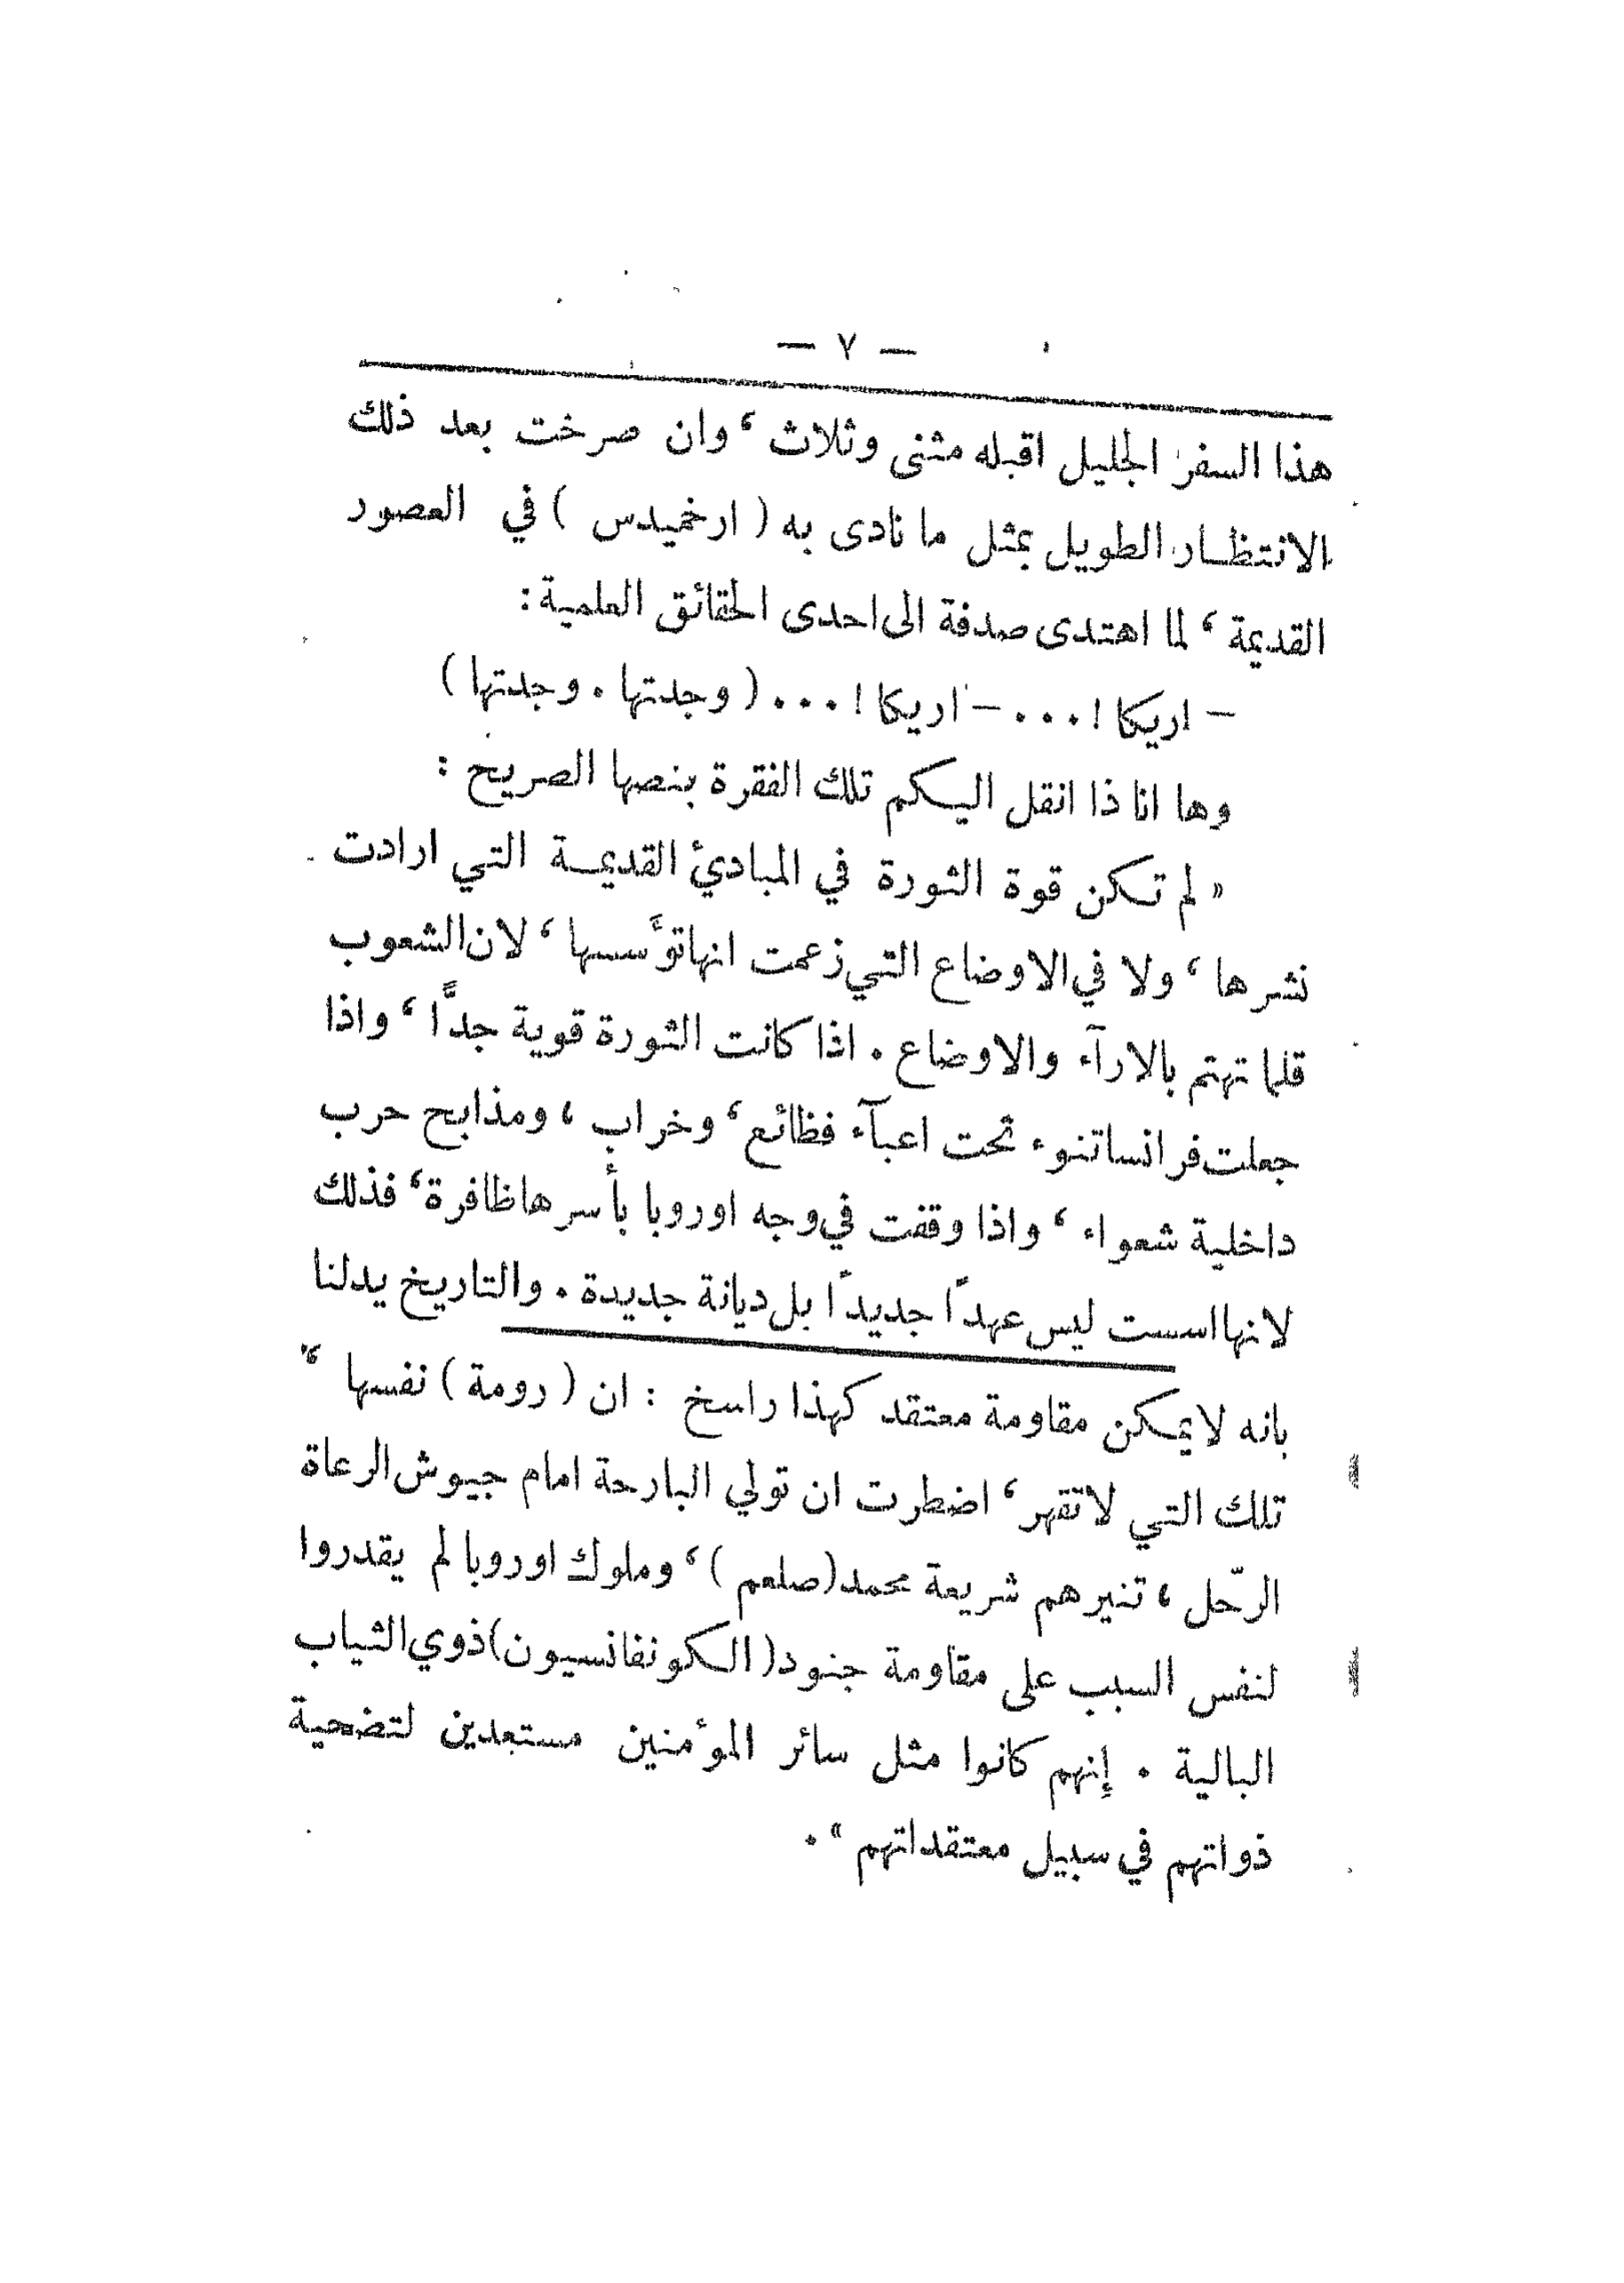 — ٧ —
هذا السفر الجليل اقبله مثنى وثلاث ، وان صرخت بعد ذلك
الانتظـار الطويل بمثل ما نادى به ( ارخميدس ) في العصور
القديمة ، لما اهتدى صدفة الى احدى الحقائق العلمية :
– اريكا ! . . . – اريكا ! . . . ( وجدتها . وجدتها )
وها انا ذا انقل اليـكم تلك الفقرة بنصها الصريح :
« لم تـكن قوة الثورة في المبادئ القديمـة التي ارادت
نشرها ، ولا في الاوضاع التي زعمت انها تؤسسها ، لان الشعوب
قلما تهتم بالارآء والاوضاع . اذا كانت الثورة قوية جدًّا ، واذا
جعلت فرانسا تنوء تحت اعبآء فظائع ، وخراب ، ومذابح حرب
داخلية شعواء ، واذا وقفت في وجه اوروبا بأسرها ظافرة ، فذلك
لانها اسست ليس عهدًا جديدًا بل ديانة جديدة . والتاريخ يدلنا
بانه لا يمـكن مقاومة معتقد كهذا راسخ : ان ( رومة ) نفسها ،
تلك التي لا تقهر ، اضطرت ان تولي البارحة امام جيوش الرعاة
الرّحل ، تنيرهم شريعة محمد ( صلعم ) ، وملوك اوروبا لم يقدروا
لنفس السبب على مقاومة جنود ( الـكونفانسيون ) ذوي الثياب
البالية . إنهم كانوا مثل سائر المؤمنين مستعدين لتضحية
ذواتهم في سبيل معتقداتهم » .